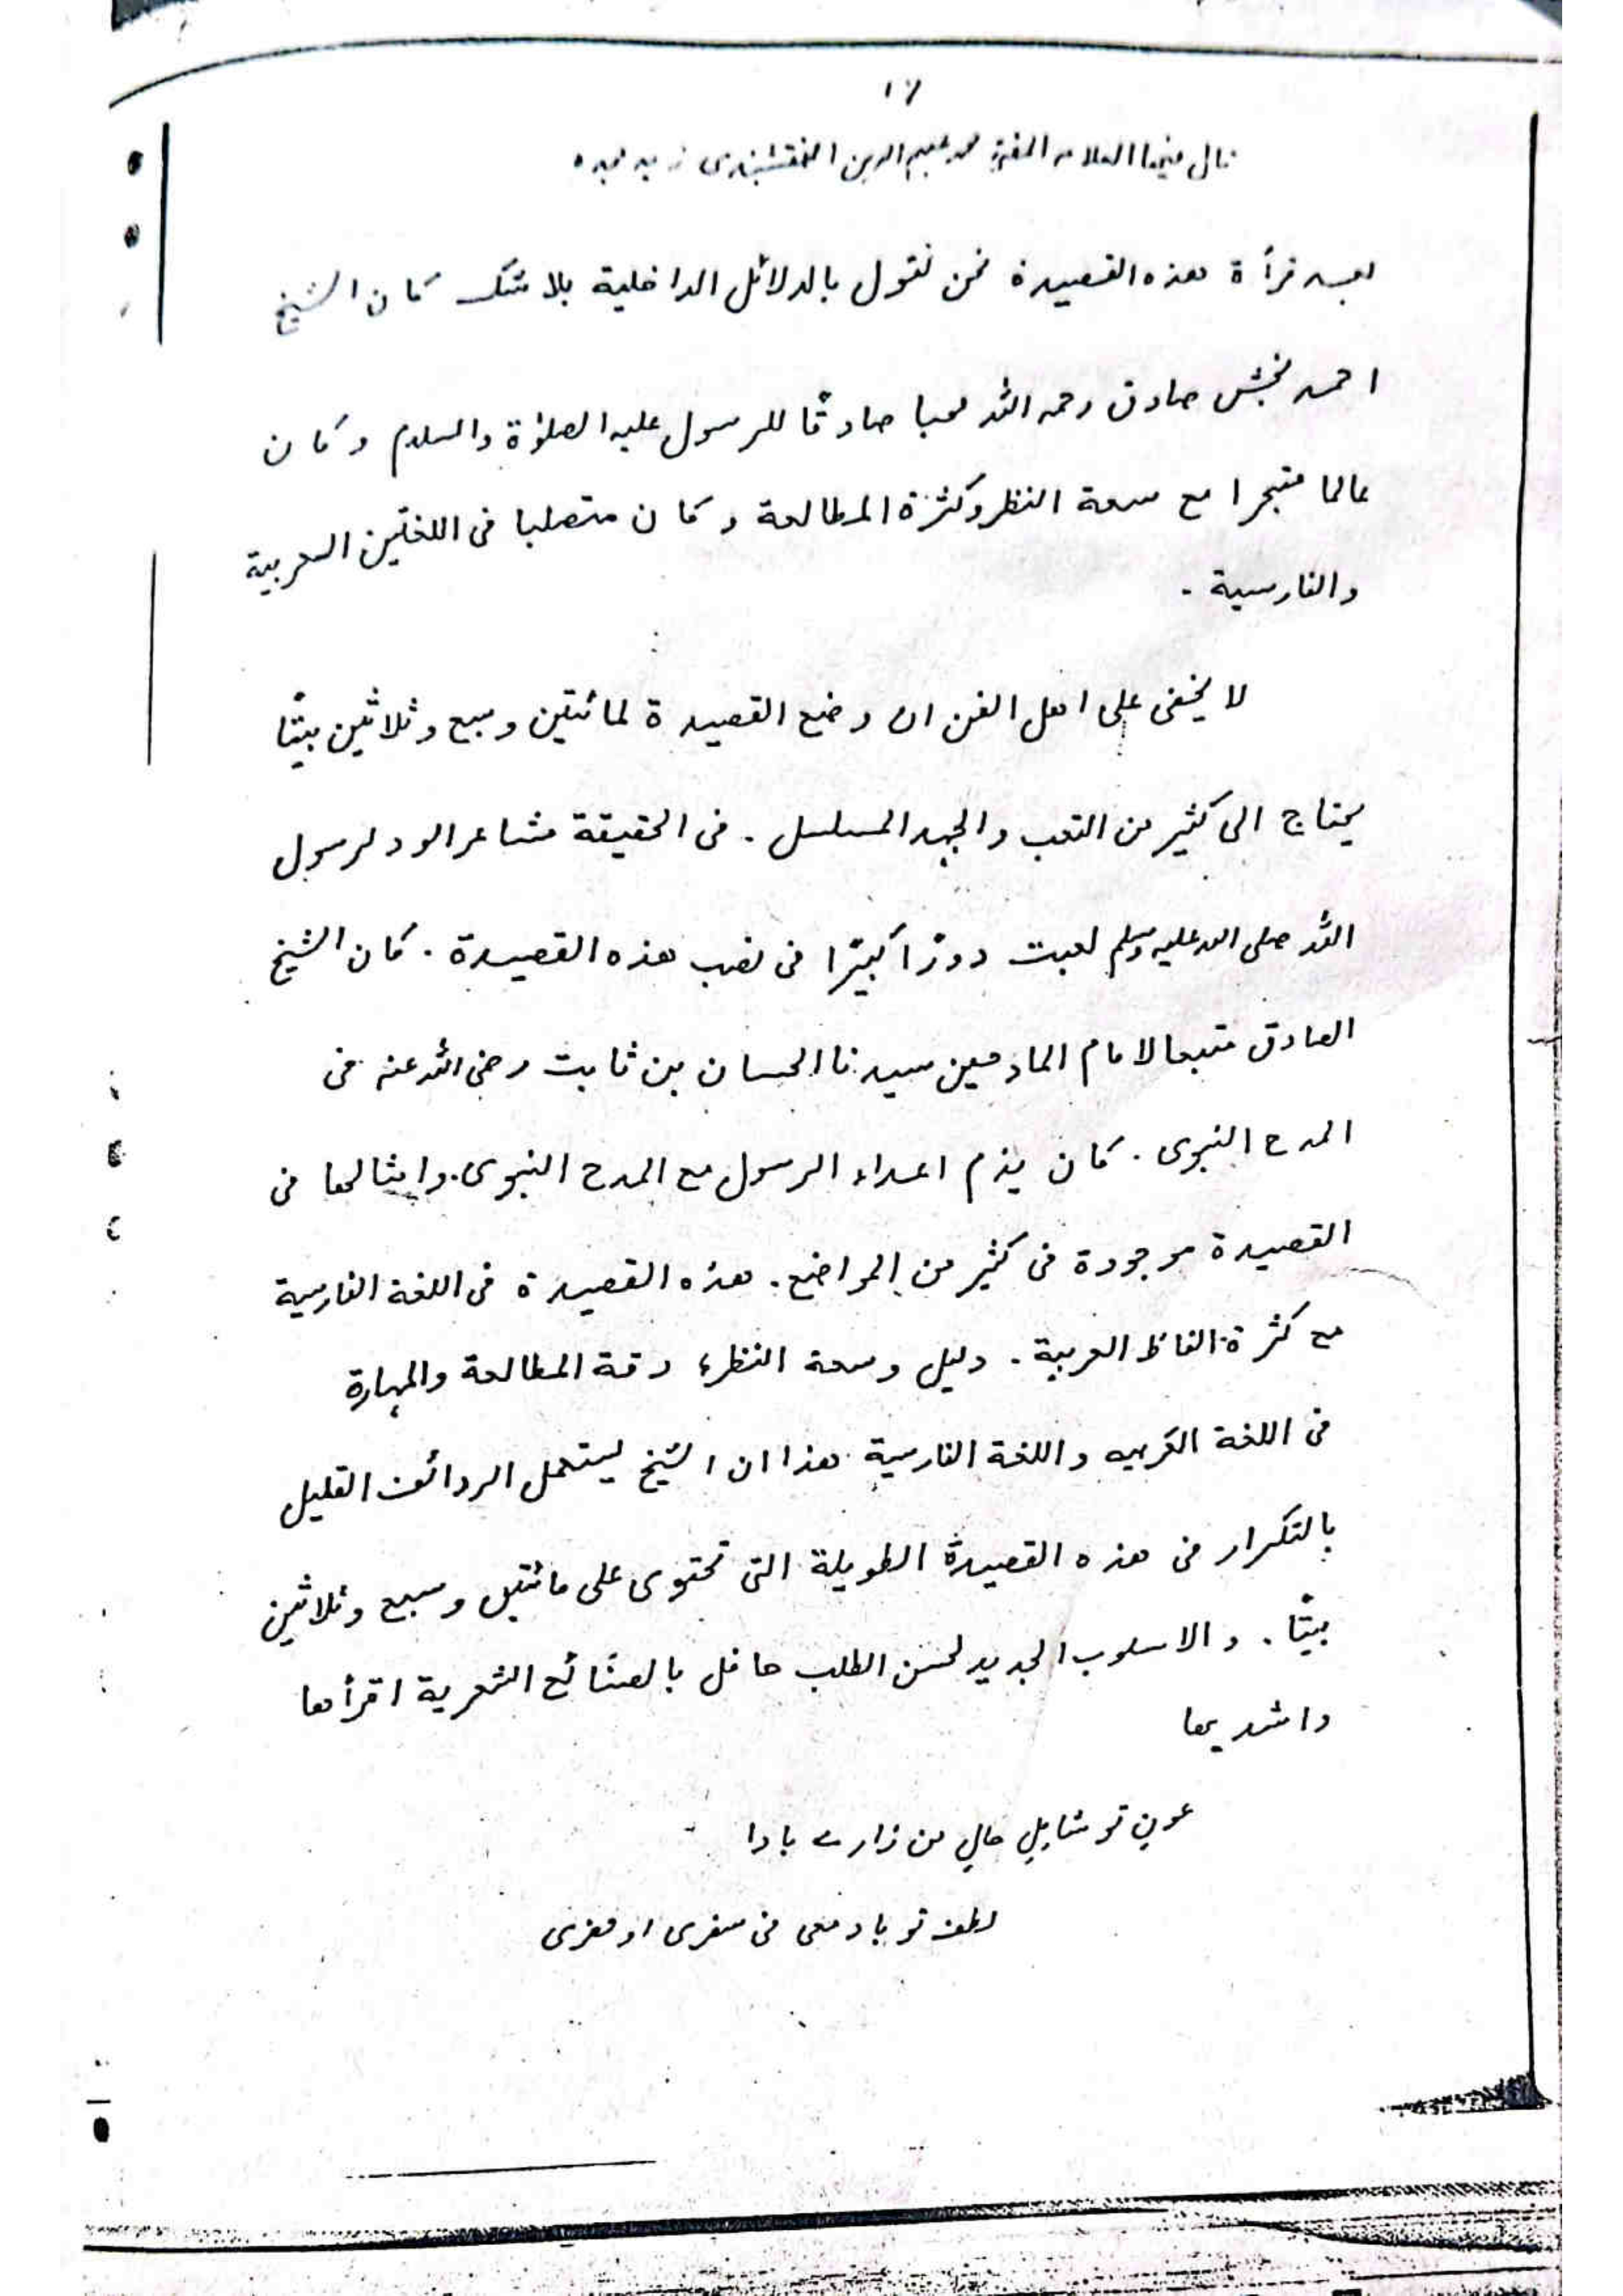 ۱۶
قال فیها العلامة المفتی محمد علیم الدین النقشبندی زید مجده
بعد قرأة هذه القصیدة نحن نقول بالدلائل الداخلیة بلا شک کان الشیخ
احمد بخش صادق رحمه الله محبا صادقًا للرسول علیه الصلوٰة والسلام وکان
عالما متبجرا مع سعة النظر وکثرة المطالعة وکان متصلبا فی اللغتین العربیة
والفارسیة ۔
لا یخفی علی اهل الفن ان وضع القصیدة لمائتین وسبع وثلاثین بیتًا
یحتاج الی کثیر من التعب والجهد المسلسل ۔ فی الحقیقة مشاعر الود لرسول
الله صلی الله علیه وسلم لعبت دورًا کبیرًا فی نصب هذه القصیدة ۔ کان الشیخ
الصادق متبعا لامام المادحین سیدنا الحسان بن ثابت رضی الله عنه فی
المدح النبوی ۔ کان یذم اعداء الرسول مع المدح النبوی ۔ وامثالها فی
القصیدة موجودة فی کثیر من المواضع ۔ هذه القصیدة فی اللغة الفارسیة
مع کثرة الفاظ العربیة ۔ دلیل وسعة النظر، دقة المطالعة والمهارة
فی اللغة العربیه واللغة الفارسیة هذا ان الشیخ لیستعمل الردائف القلیل
بالتکرار فی هذه القصیدة الطویلة التی تحتوی علی مائتین وسبع وثلاثین
بیتًا ۔ والاسلوب الجدید لحسن الطلب حافل بالصنائع الشعریة اقرأها
واشدیها
عون تو شاملِ حالِ من زارے بادا
لطف تو باد معی فی سفری او حضری